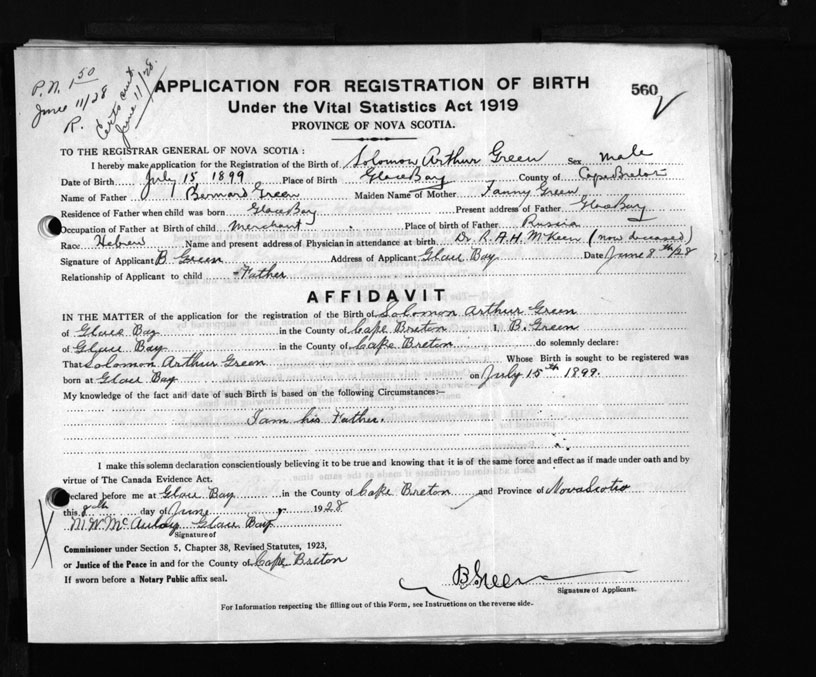 P.N. 1.50
June 11/28
R.
Certs sent
June 11/28.
APPLICATION FOR REGISTRATION OF BIRTH
560
Under the Vital Statistics Act 1919
PROVINCE OF NOVA SCOTIA.
TO THE REGISTRAR GENERAL OF NOVA SCOTIA :
I hereby make application for the Registration of the Birth of Solomon Arthur Green Sex male
Date of Birth July 15 1899 Place of Birth Glace Bay County of Cape Breton
Name of Father Bernard Green Maiden Name of Mother Fanny Green
Residence of Father when child was born Glace Bay Present address of Father Glace Bay
Occupation of Father at Birth of child Merchant Place of birth of Father Russia
Race Hebrew Name and present address of Physician in attendance at birth Dr. R.A.H. McKeen (now deceased)
Signature of Applicant B Green Address of Applicant Glace Bay Date June 8th/28
Relationship of Applicant to child Father
AFFIDAVIT
IN THE MATTER of the application for the registration of the Birth of Solomon Arthur Green
of Glace Bay in the County of Cape Breton I, B. Green
of Glace Bay in the County of Cape Breton do solemnly declare:
That Solomon Arthur Green Whose Birth is sought to be registered was
born at Glace Bay on July 15th 1899.
My knowledge of the fact and date of such Birth is based on the following Circumstances:—
I am his Father.
I make this solemn declaration conscientiously believing it to be true and knowing that it is of the same force and effect as if made under oath and by
virtue of The Canada Evidence Act.
Declared before me at Glace Bay in the County of Cape Breton and Province of Nova Scotia
this 8th day of June 1928
M.W. McAulay Glace Bay
Signature of
Commissioner under Section 5, Chapter 38, Revised Statutes, 1923,
or Justice of the Peace in and for the County of Cape Breton
If sworn before a Notary Public affix seal.
B Green
Signature of Applicant.
For Information respecting the filling out of this Form, see Instructions on the reverse side.